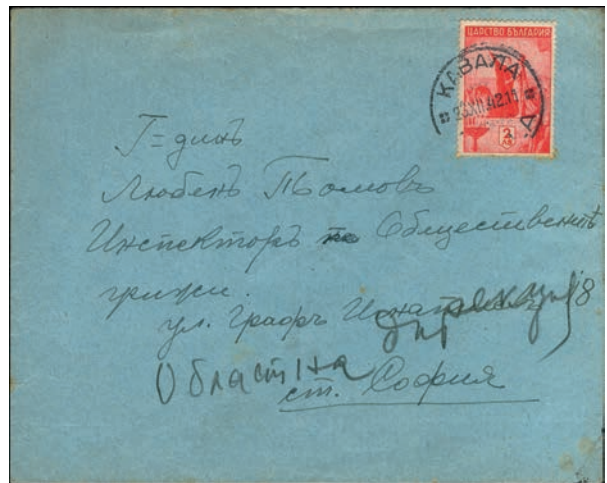 ЦАРСТВО БЪЛГАРИЯ
КАВАЛА
23.XII.42.
2
ЛВ
Г=динъ
Любенъ Томовъ
Инспекторъ по Обществениτѣ
грижи.
ул. Графъ Игнатиевъ 8
Областна дирекция
ст. София